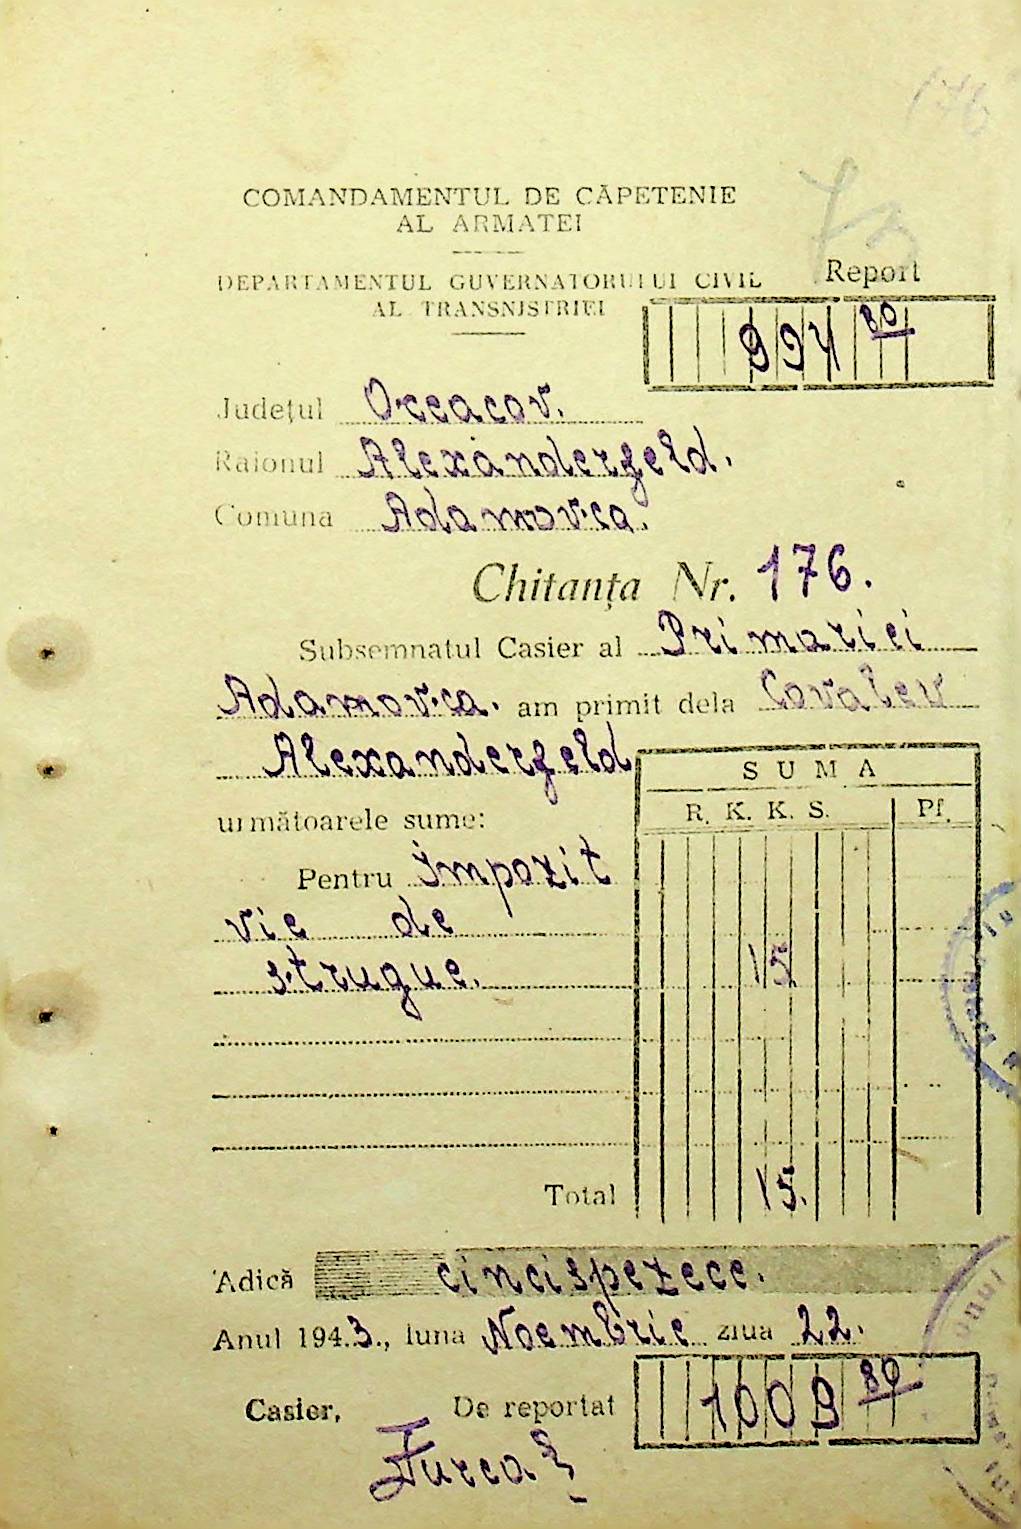 176
COMANDAMENTUL DE CĂPETENIE
AL ARMATEI
DEPARTAMENTUL GUVERNATORULUI CIVIL
AL TRANSNISTRIEI
Report
994 80
Județul Oceacov.
Raionul Alexanderfeld.
Comuna Adamovca.
Chitanța Nr. 176.
Subsemnatul Casier al Primariei
Adamovca. am primit dela Covalev
Alexanderfeld
următoarele sume:
SUMA
R. K. K. S. Pf.
Pentru Impozit
vie de
strugue. 15
Total 15.
Adică cincispezece.
Anul 1943., luna Noembrie ziua 22.
Casier, De reportat 1009 80